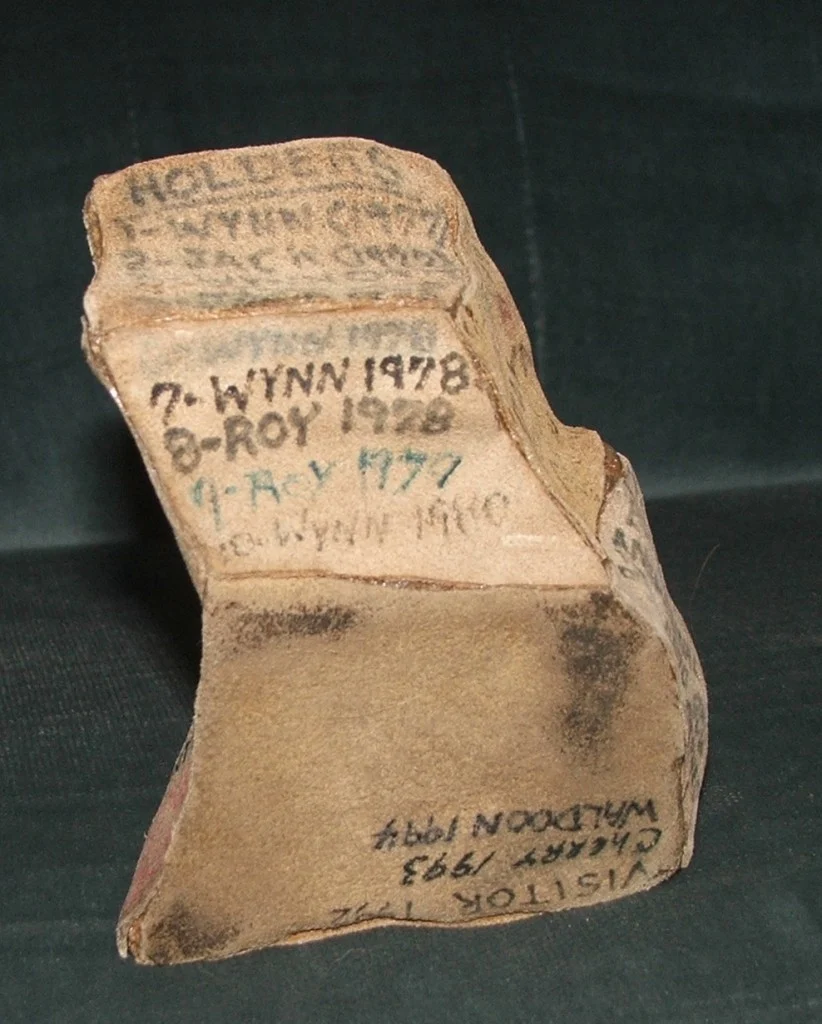 HOLDERS
1-WYNN (1977)
2-JACK (1977)
WYNN 1978
7-WYNN 1978
8-ROY 1978
9-ROY 1977
10-WYNN 1980
-VISITOR 1992
CHERRY 1993
WALDOON 1994